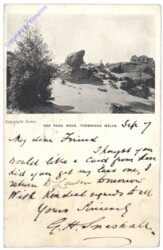 ansichtskartenversand.com
Copyright Series.
THE TOAD ROCK, TUNBRIDGE WELLS.
Sep 7
My dear Friend
I thought you
would like a Card from here
did you get my last one, I
return to London tomorrow
With kindest regards to all
Yours Sincerely
G. H.